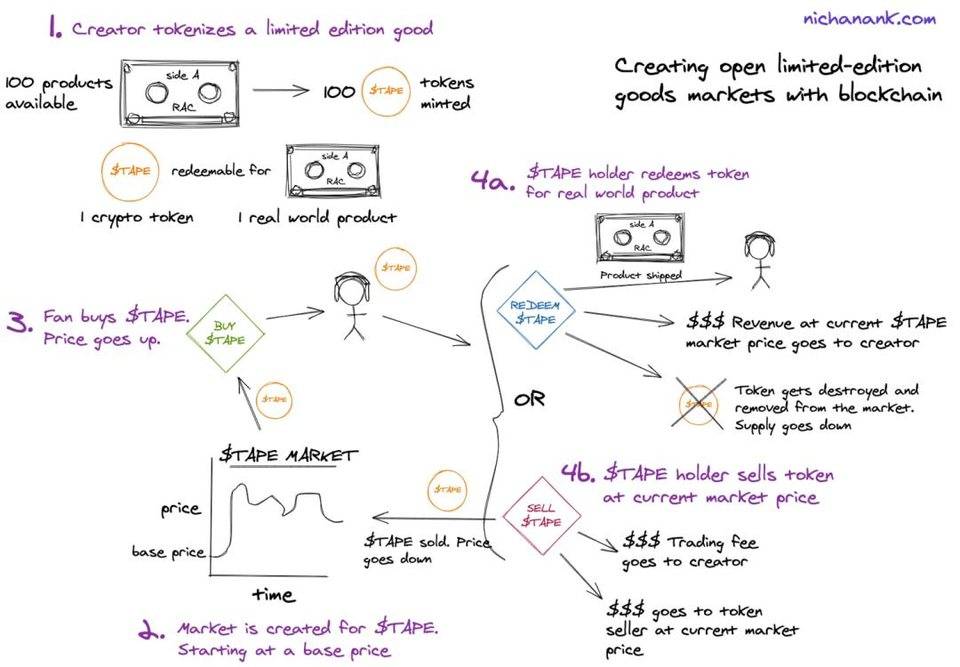 nichanank.com
Creating open limited-edition
goods markets with blockchain
1. Creator tokenizes a limited edition good
100 products
available
side A
RAC
100
$TAPE
tokens
minted
$TAPE
redeemable for
side A
RAC
1 crypto token
1 real world product
2. Market is created for $TAPE.
Starting at a base price
$TAPE MARKET
price
base price
time
3. Fan buys $TAPE.
Price goes up.
$TAPE
BUY
$TAPE
$TAPE
4a. $TAPE holder redeems token
for real world product
side A
RAC
Product shipped
REDEEM
$TAPE
$$$ Revenue at current $TAPE
market price goes to creator
$TAPE
Token gets destroyed and
removed from the market.
Supply goes down
OR
4b. $TAPE holder sells token
at current market price
SELL
$TAPE
$TAPE
$TAPE sold. Price
goes down
$$$ Trading fee
goes to creator
$$$ goes to token
seller at current market
price